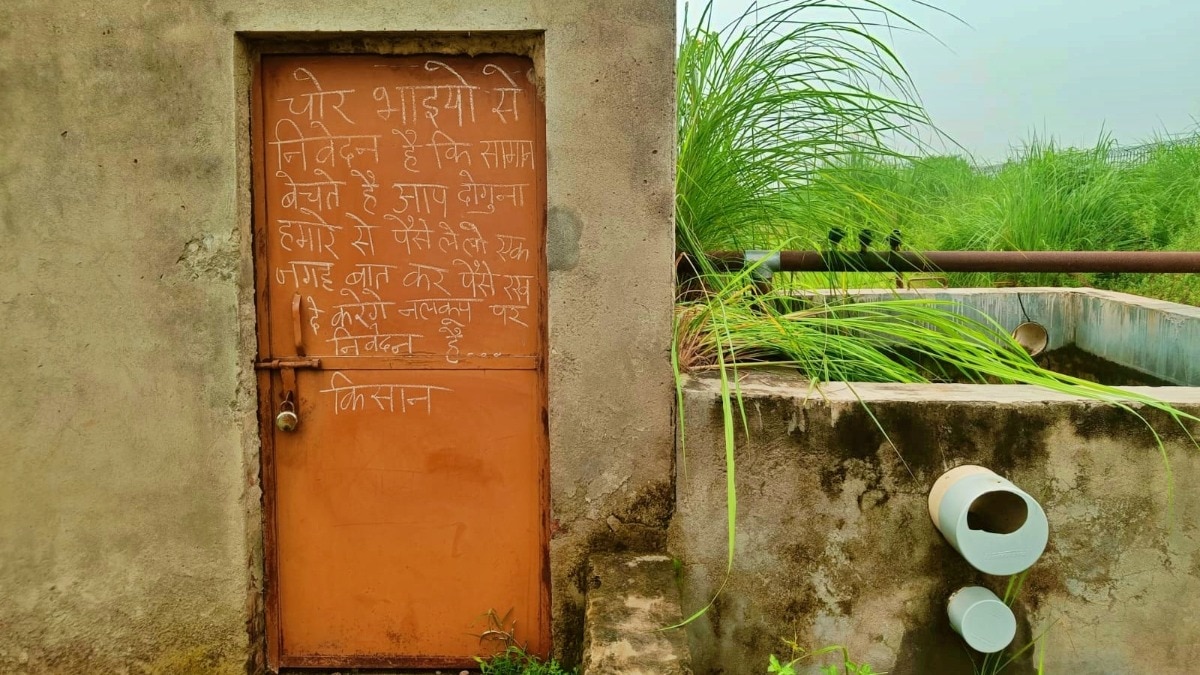 चोर भाइयो से
निवेदन है कि सामान
बेचते है आप दोगुना
हमारे से पैसे लेलो एक
जगह बात कर पैसे रख
दे करेगे नलकूप पर
निवेदन है...
किसान